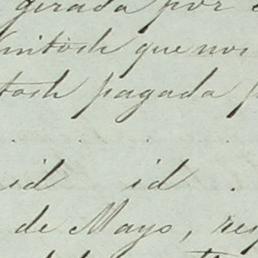 girada por
intosh que nos
tosh pagada p
id id.
de Mayo, res